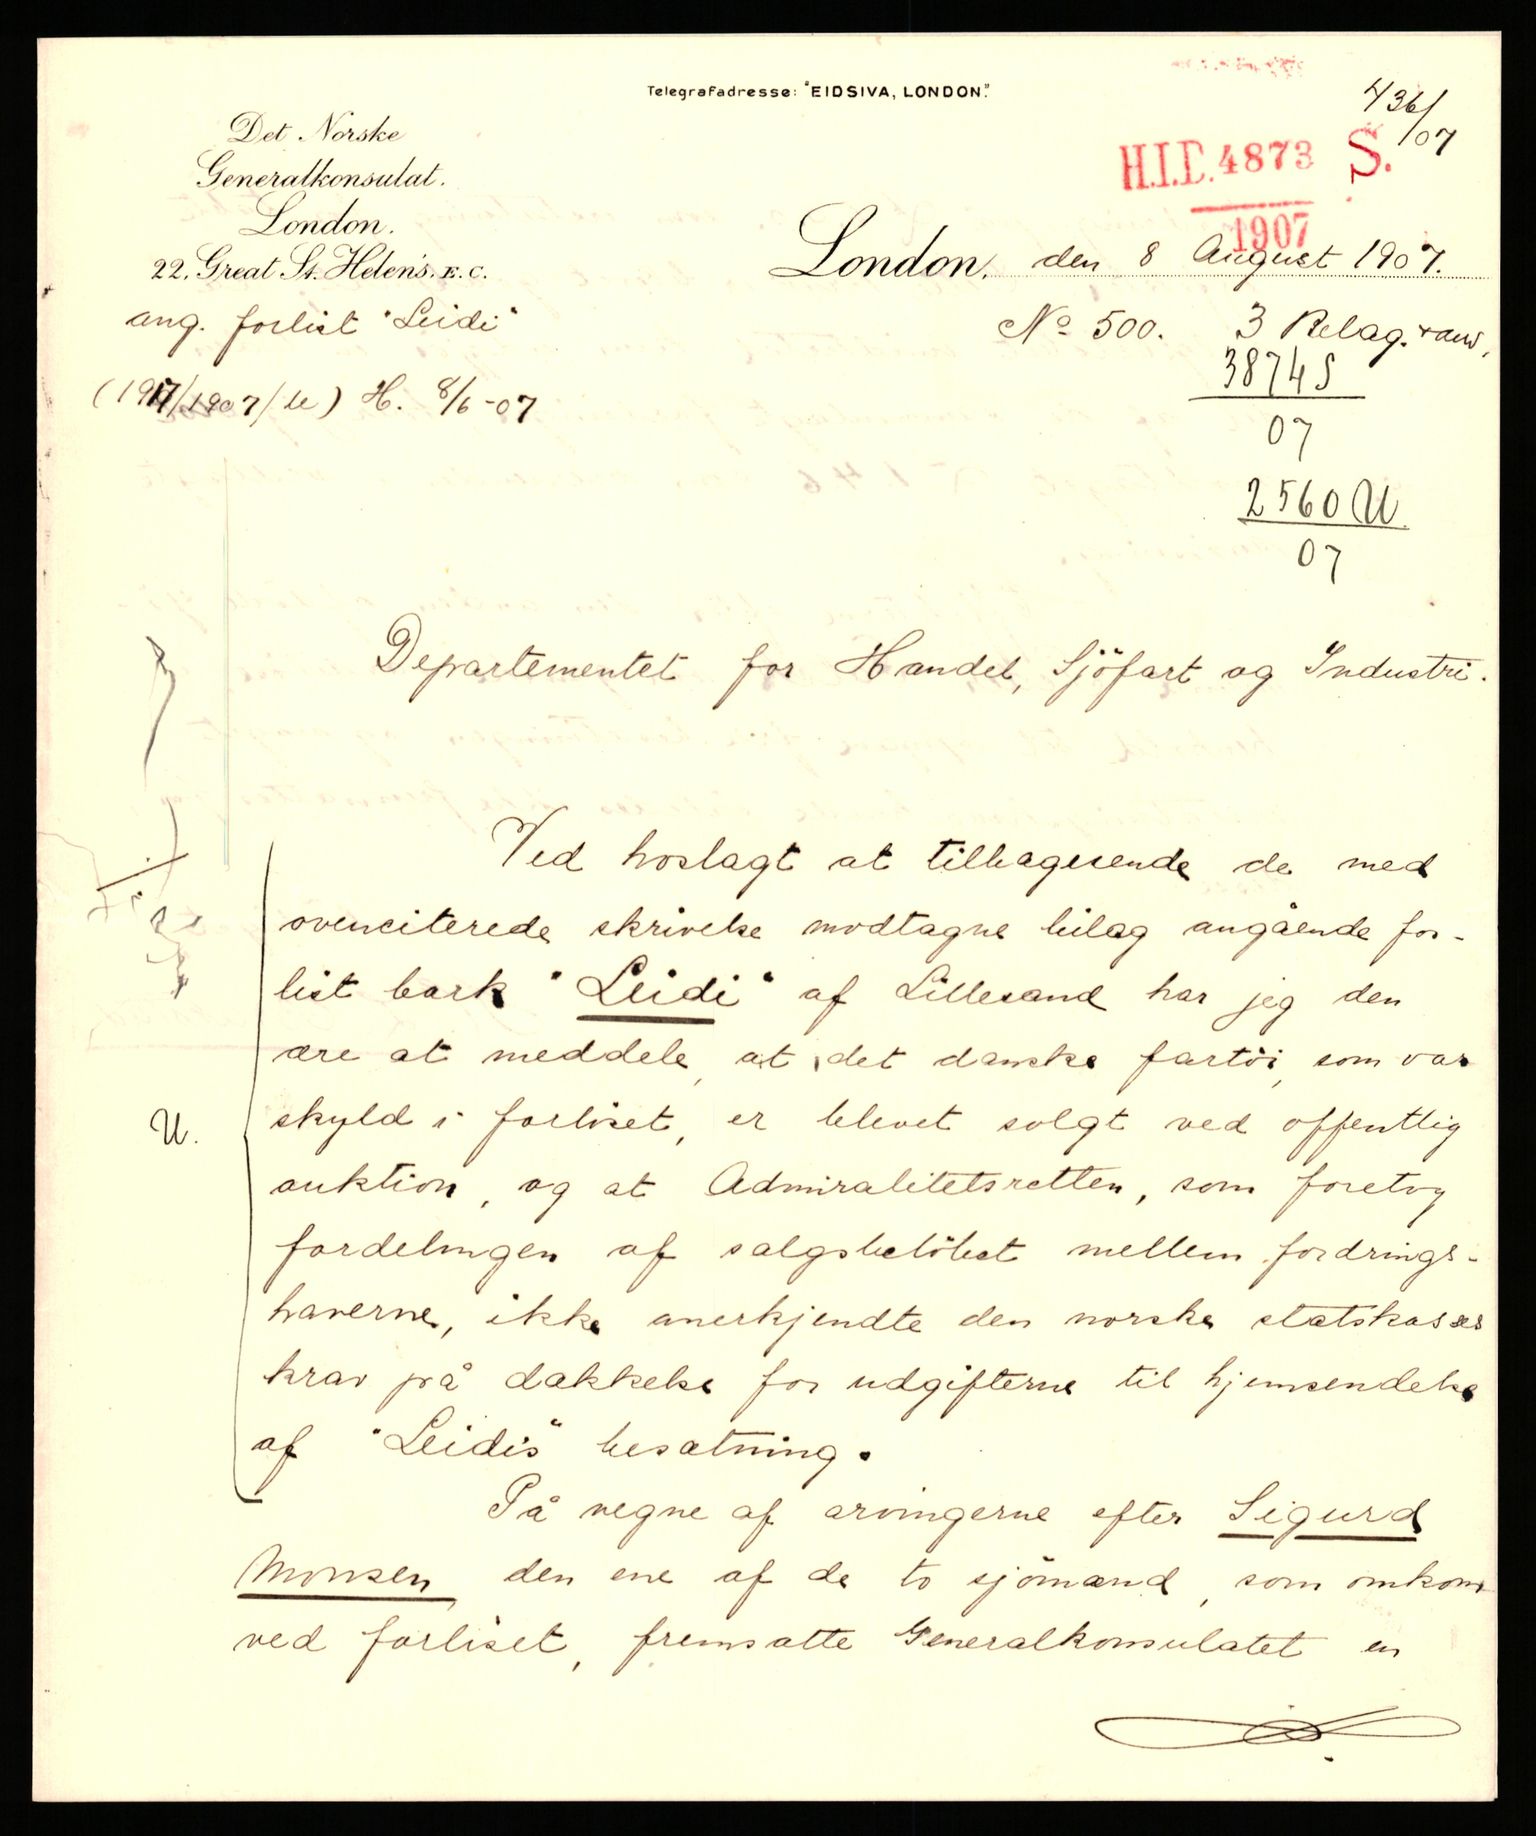 Telegrafadresse: "EIDSIVA, LONDON."
436/07
Det Norske
Generalkonsulat.
London.
22. Great St. Helen's. E.C.
H.I.D. 4873 S.
1907
London, den 8 August 1907.
ang. forlist "Leidi"
No 500. 3 Bilag.
3874 S
07
(1917/1907/U) H. 8/6-07
2560 U
07
Departementet for Handel, Sjöfart og Industri.
Ved hoslagt at tilbagesende de med
ovenciterede skrivelse modtagne bilag angående for-
list bark "Leidi" af Lillesand har jeg den
ære at meddele, at det danske fartöi, som var
U.
skyld i forliset, er blevet solgt ved offentlig
auktion, og at Admiralitetsretten, som foretog
fordelingen af salgsbelöbet mellem fordrings-
haverne, ikke anerkjendte den norske statskasses
krav på dækkelse for udgifterne til hjemsendelse
af "Leidis" besætning.
På vegne af arvingerne efter Sigurd
Monsen, den ene af de to sjömænd, som omkom
ved forliset, fremsatte Generalkonsulatet en